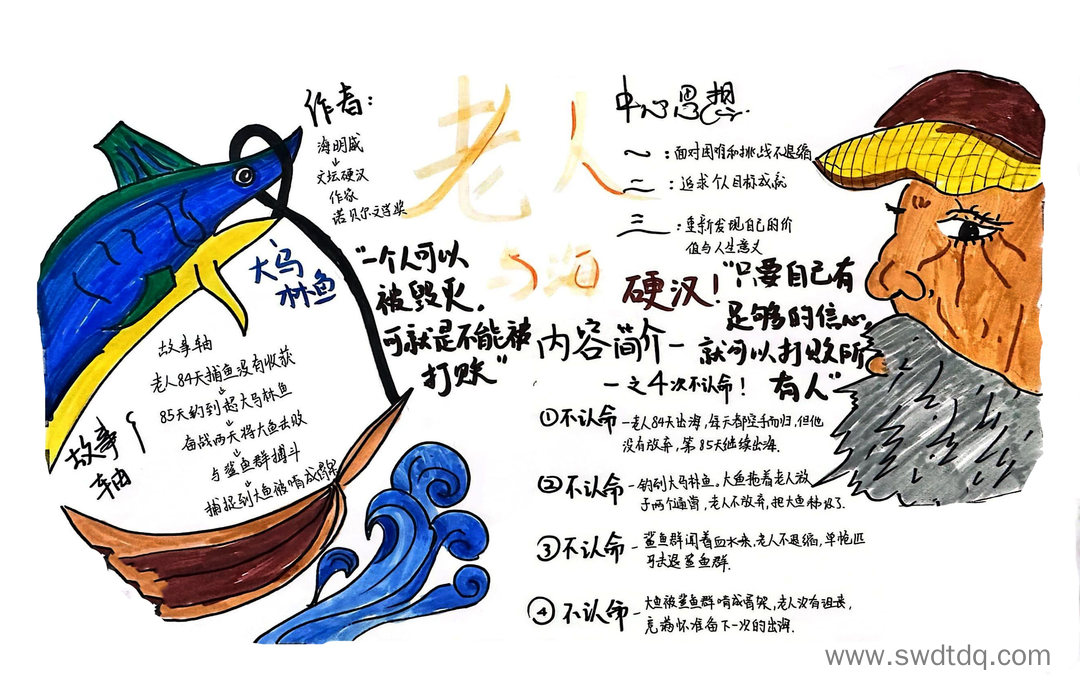 老人
与海
作者:
海明威
文坛硬汉
作家
诺贝尔文学奖
大马
林鱼
故事轴
老人84天捕鱼没有收获
85天钓到超大马林鱼
奋战两天将大鱼击败
与鲨鱼群搏斗
捕捉到大鱼被啃成骨架
故事
轴
"一个人可以
被毁灭,
可就是不能被
打败"
中心思想
一:面对困难和挑战不退缩
二:追求个人目标成就
三:重新发现自己的价
值与人生意义
硬汉!
"只要自己有
足够的信心,
就可以打败所
有人"
内容简介一
一之4次不认命!
①不认命-老人84天出海,每天都空手而归,但他
没有放弃,第85天继续出海.
②不认命-钓到大马林鱼,大鱼拖着老人放
于两个通宵,老人不放弃,把大鱼杀死了.
③不认命-鲨鱼群闻着血水来,老人不退缩,单枪匹
马击退鲨鱼群.
④不认命-大鱼被鲨鱼群啃成骨架,老人没有沮丧,
充满怀准备下一次的出海.
www.swdtdq.com